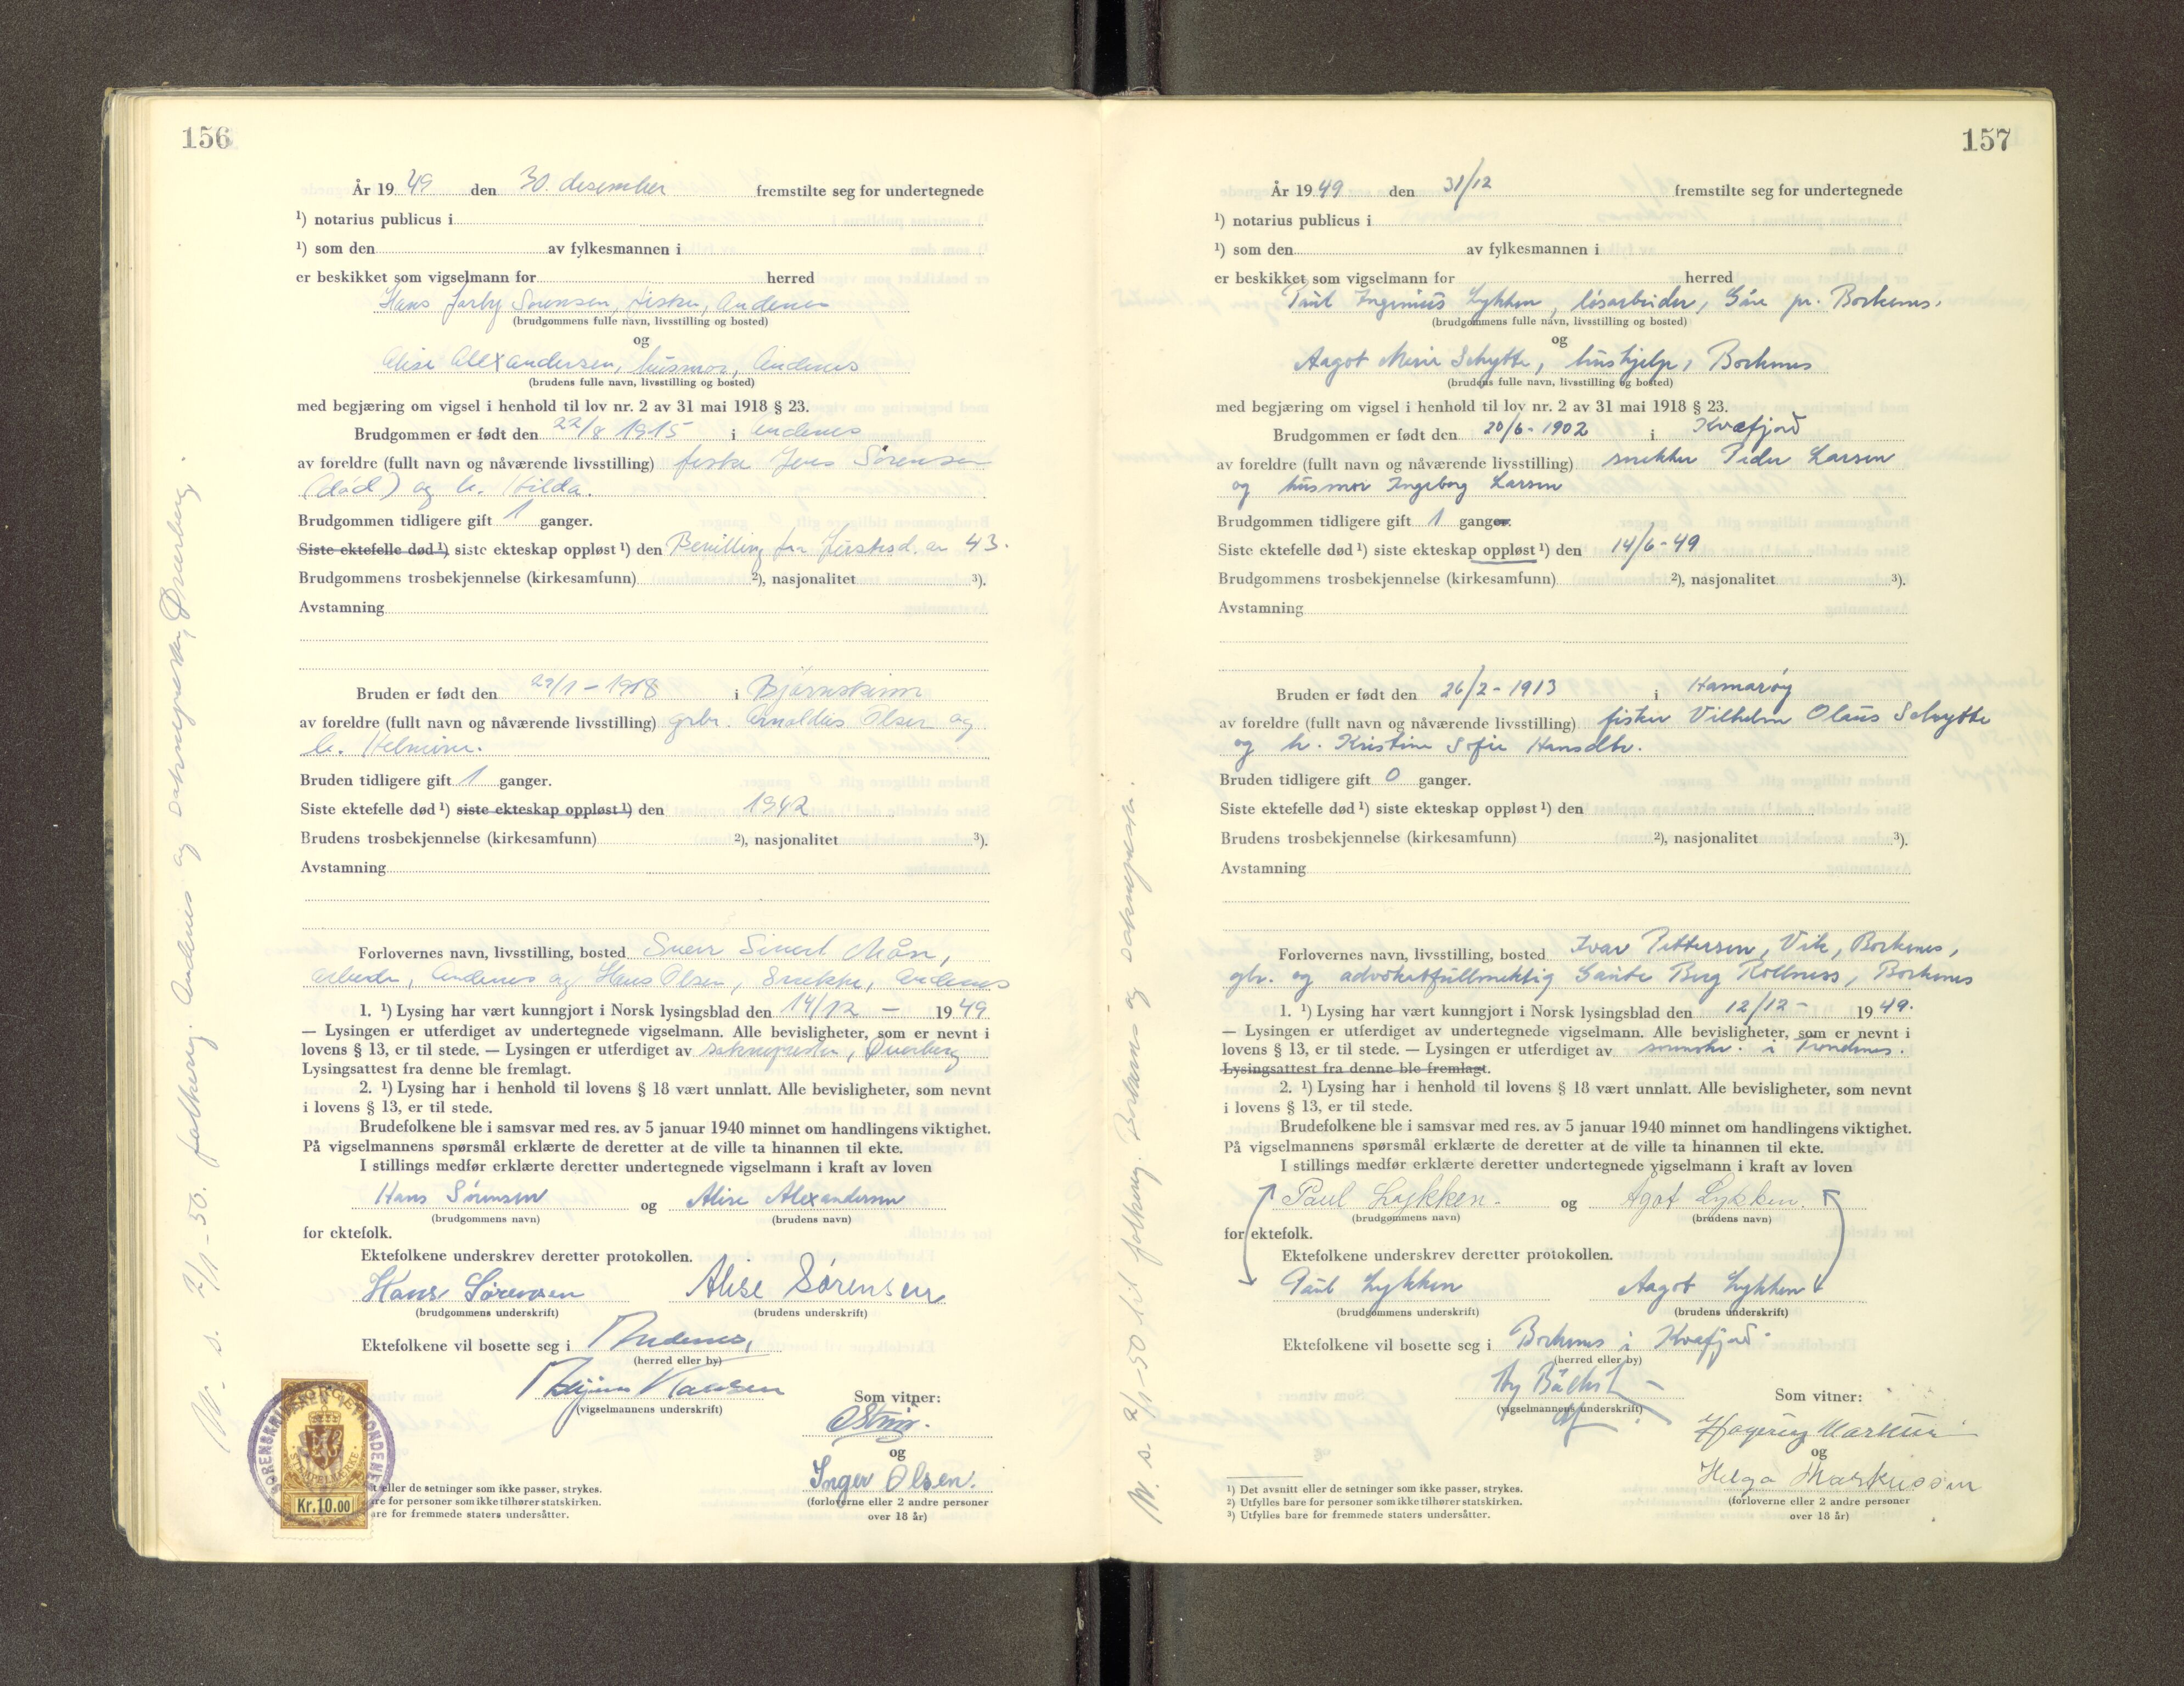 156
År 19 49 den 30. desember fremstilte seg for undertegnede
¹) notarius publicus i
¹) som den av fylkesmannen i
er beskikket som vigselmann for herred
Hans Jarby Sørensen, fisker, Andenes
(brudgommens fulle navn, livsstilling og bosted)
og
Alise Alexandersen, husmor, Andenes
(brudens fulle navn, livsstilling og bosted)
med begjæring om vigsel i henhold til lov nr. 2 av 31 mai 1918 § 23.
Brudgommen er født den 22/8 1915 i Andenes
av foreldre (fullt navn og nåværende livsstilling) fisker Jens Sørensen
(død) og h. Hilda.
Brudgommen tidligere gift 1 ganger.
Siste ektefelle død ¹) siste ekteskap oppløst ¹) den Bevilling fra Justisd. av 43.
Brudgommens trosbekjennelse (kirkesamfunn) ²), nasjonalitet ³).
Avstamning
Bruden er født den 22/1 - 1908 i Bjørnskinn
av foreldre (fullt navn og nåværende livsstilling) gbr. Arnoldus Olsen og
h. Helmine.
Bruden tidligere gift 1 ganger.
Siste ektefelle død ¹) siste ekteskap oppløst ¹) den 1942
Brudens trosbekjennelse (kirkesamfunn) ²), nasjonalitet ³).
Avstamning
Forlovernes navn, livsstilling, bosted Sivert
arbeider, Andenes og Hans Olsen, Snekker, Andenes
1. ¹) Lysing har vært kunngjort i Norsk lysingsblad den 14/12 - 19 49
— Lysingen er utferdiget av undertegnede vigselmann. Alle bevisligheter, som er nevnt i
lovens § 13, er til stede. — Lysingen er utferdiget av soknepresten, Dverberg
Lysingsattest fra denne ble fremlagt.
2. ¹) Lysing har i henhold til lovens § 18 vært unnlatt. Alle bevisligheter, som nevnt
i lovens § 13, er til stede.
Brudefolkene ble i samsvar med res. av 5 januar 1940 minnet om handlingens viktighet.
På vigselmannens spørsmål erklærte de deretter at de ville ta hinannen til ekte.
I stillings medfør erklærte deretter undertegnede vigselmann i kraft av loven
Hans Sørensen og Alise Alexandersen
(brudgommens navn) (brudens navn)
for ektefolk.
Ektefolkene underskrev deretter protokollen.
Hans Sørensen Alise Sørensen
(brudgommens underskrift) (brudens underskrift)
Ektefolkene vil bosette seg i Andenes,
(herred eller by)
(vigselmannens underskrift)
Som vitner:
og
Inger Olsen.
(forloverne eller 2 andre personer
over 18 år)
eller de setninger som ikke passer, strykes.
are for personer som ikke tilhører statskirken.
are for fremmede staters undersåtter.
SORENSKRIVEREN I TRONDENES
STEMPELMERKE
Kr.10.00
M. s. 2/1-50. folkereg. Andenes og soknepresten, Dverberg.
157
År 19 49 den 31/12 fremstilte seg for undertegnede
¹) notarius publicus i
¹) som den av fylkesmannen i
er beskikket som vigselmann for herred
Paul Ingenius Lykken, løsarbeider, Gåre pr. Borkenes.
(brudgommens fulle navn, livsstilling og bosted)
og
Aagot Marie Schytte, hushjelp, Borkenes
(brudens fulle navn, livsstilling og bosted)
med begjæring om vigsel i henhold til lov nr. 2 av 31 mai 1918 § 23.
Brudgommen er født den 20/6 - 1902 i Kvæfjord
av foreldre (fullt navn og nåværende livsstilling) snekker Peder Larsen
og husmor Ingeborg Larsen
Brudgommen tidligere gift 1 ganger.
Siste ektefelle død ¹) siste ekteskap oppløst ¹) den 14/6 - 49
Brudgommens trosbekjennelse (kirkesamfunn) ²), nasjonalitet ³).
Avstamning
Bruden er født den 26/2 - 1913 i Hamarøy
av foreldre (fullt navn og nåværende livsstilling) fisker Vilhelm Olaus Schytte
og h. Kristine Sofie Hansdtr.
Bruden tidligere gift 0 ganger.
Siste ektefelle død ¹) siste ekteskap oppløst ¹) den
Brudens trosbekjennelse (kirkesamfunn) ²), nasjonalitet ³).
Avstamning
Forlovernes navn, livsstilling, bosted Ivar Pettersen, Vik, Borkenes,
gbr. og advokatfullmektig Berg Rollness, Borkenes
1. ¹) Lysing har vært kunngjort i Norsk lysingsblad den 12/12 - 19 49.
— Lysingen er utferdiget av undertegnede vigselmann. Alle bevisligheter, som er nevnt i
lovens § 13, er til stede. — Lysingen er utferdiget av sorenskr. i Trondenes.
Lysingsattest fra denne ble fremlagt.
2. ¹) Lysing har i henhold til lovens § 18 vært unnlatt. Alle bevisligheter, som nevnt
i lovens § 13, er til stede.
Brudefolkene ble i samsvar med res. av 5 januar 1940 minnet om handlingens viktighet.
På vigselmannens spørsmål erklærte de deretter at de ville ta hinannen til ekte.
I stillings medfør erklærte deretter undertegnede vigselmann i kraft av loven
Paul Lykken. og Agot Lykken.
(brudgommens navn) (brudens navn)
for ektefolk.
Ektefolkene underskrev deretter protokollen.
Paul Lykken Aagot Lykken
(brudgommens underskrift) (brudens underskrift)
Ektefolkene vil bosette seg i Borkenes i Kvæfjord.
(herred eller by)
(vigselmannens underskrift)
Som vitner:
og
Helga Markusson
(forloverne eller 2 andre personer
over 18 år)
¹) Det avsnitt eller de setninger som ikke passer, strykes.
²) Utfylles bare for personer som ikke tilhører statskirken.
³) Utfylles bare for fremmede staters undersåtter.
M. s. 2/1-50 til folkereg. Borkenes og soknepresten.